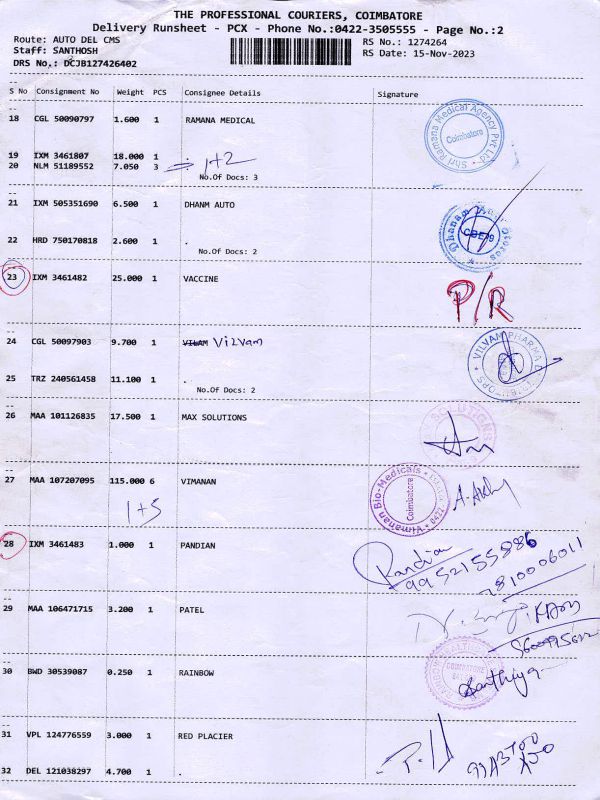 THE PROFESSIONAL COURIERS, COIMBATORE
Delivery Runsheet - PCX - Phone No.:0422-3505555 - Page No.:2
Route: AUTO DEL CMS
RS No.: 1274264
Staff: SANTHOSH
RS Date: 15-Nov-2023
DRS No.: DCJB127426402
S No Consignment No Weight PCS Consignee Details Signature
18 CGL 50090797 1.600 1 RAMANA MEDICAL
Shri Ramana Medical Agency Pvt Ltd Coimbatore
19 IXM 3461807 18.000 1
20 NLM 51189552 7.050 3 1+2
No.Of Docs: 3
21 IXM 505351690 6.500 1 DHANM AUTO
22 HRD 750170818 2.600 1 .
No.Of Docs: 2
23 IXM 3461482 25.000 1 VACCINE P/R
24 CGL 50097903 9.700 1 VILAM Vilvam
VILVAM PHARMA
25 TRZ 240561458 11.100 1 .
No.Of Docs: 2
26 MAA 101126835 17.500 1 MAX SOLUTIONS
27 MAA 107207095 115.000 6 VIMANAN
1+5
Vimanan Bio-Medicals Coimbatore
28 IXM 3461483 1.000 1 PANDIAN
Pandian
9952155886
7810006011
29 MAA 106471715 3.200 1 PATEL
30 BWD 30539087 0.250 1 RAINBOW
COIMBATORE
Santhiya
31 VPL 124776559 3.000 1 RED PLACIER
32 DEL 121038297 4.700 1 .